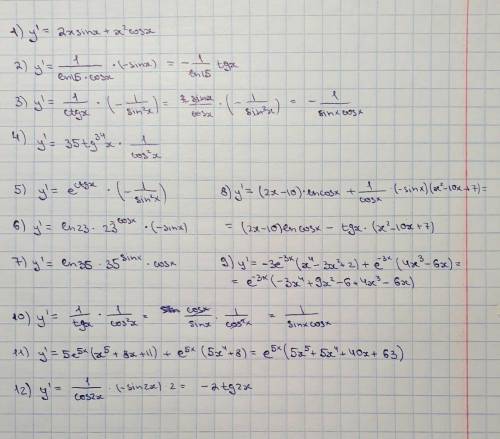 1) y' = 2x sinx + x² cosx
2) y' = 1/(ln15 · cosx) · (-sinx) = - 1/ln15 tgx
3) y' = 1/ctgx · (- 1/sin²x) = sinx/cosx · (- 1/sin²x) = - 1/(sinx cosx)
4) y' = 35 tg³⁴x · 1/cos²x
5) y' = e^ctgx · (- 1/sin²x)
6) y' = ln23 · 23^cosx · (-sinx)
7) y' = ln35 · 35^sinx · cosx
8) y' = (2x-10) · ln cosx + 1/cosx · (-sinx)(x²-10x+7) =
= (2x-10) ln cosx - tgx · (x²-10x+7)
9) y' = -3e^-3x (x⁴-3x²+2) + e^-3x (4x³-6x) =
= e^-3x (-3x⁴+9x²-6+4x³-6x)
10) y' = 1/tgx · 1/cos²x = cosx/sinx · 1/cos²x = 1/(sinx cosx)
11) y' = 5e^5x (x⁵+8x+11) + e^5x (5x⁴+8) = e^5x (5x⁵+5x⁴+40x+63)
12) y' = 1/cos2x · (-sin2x) · 2 = -2tg2x